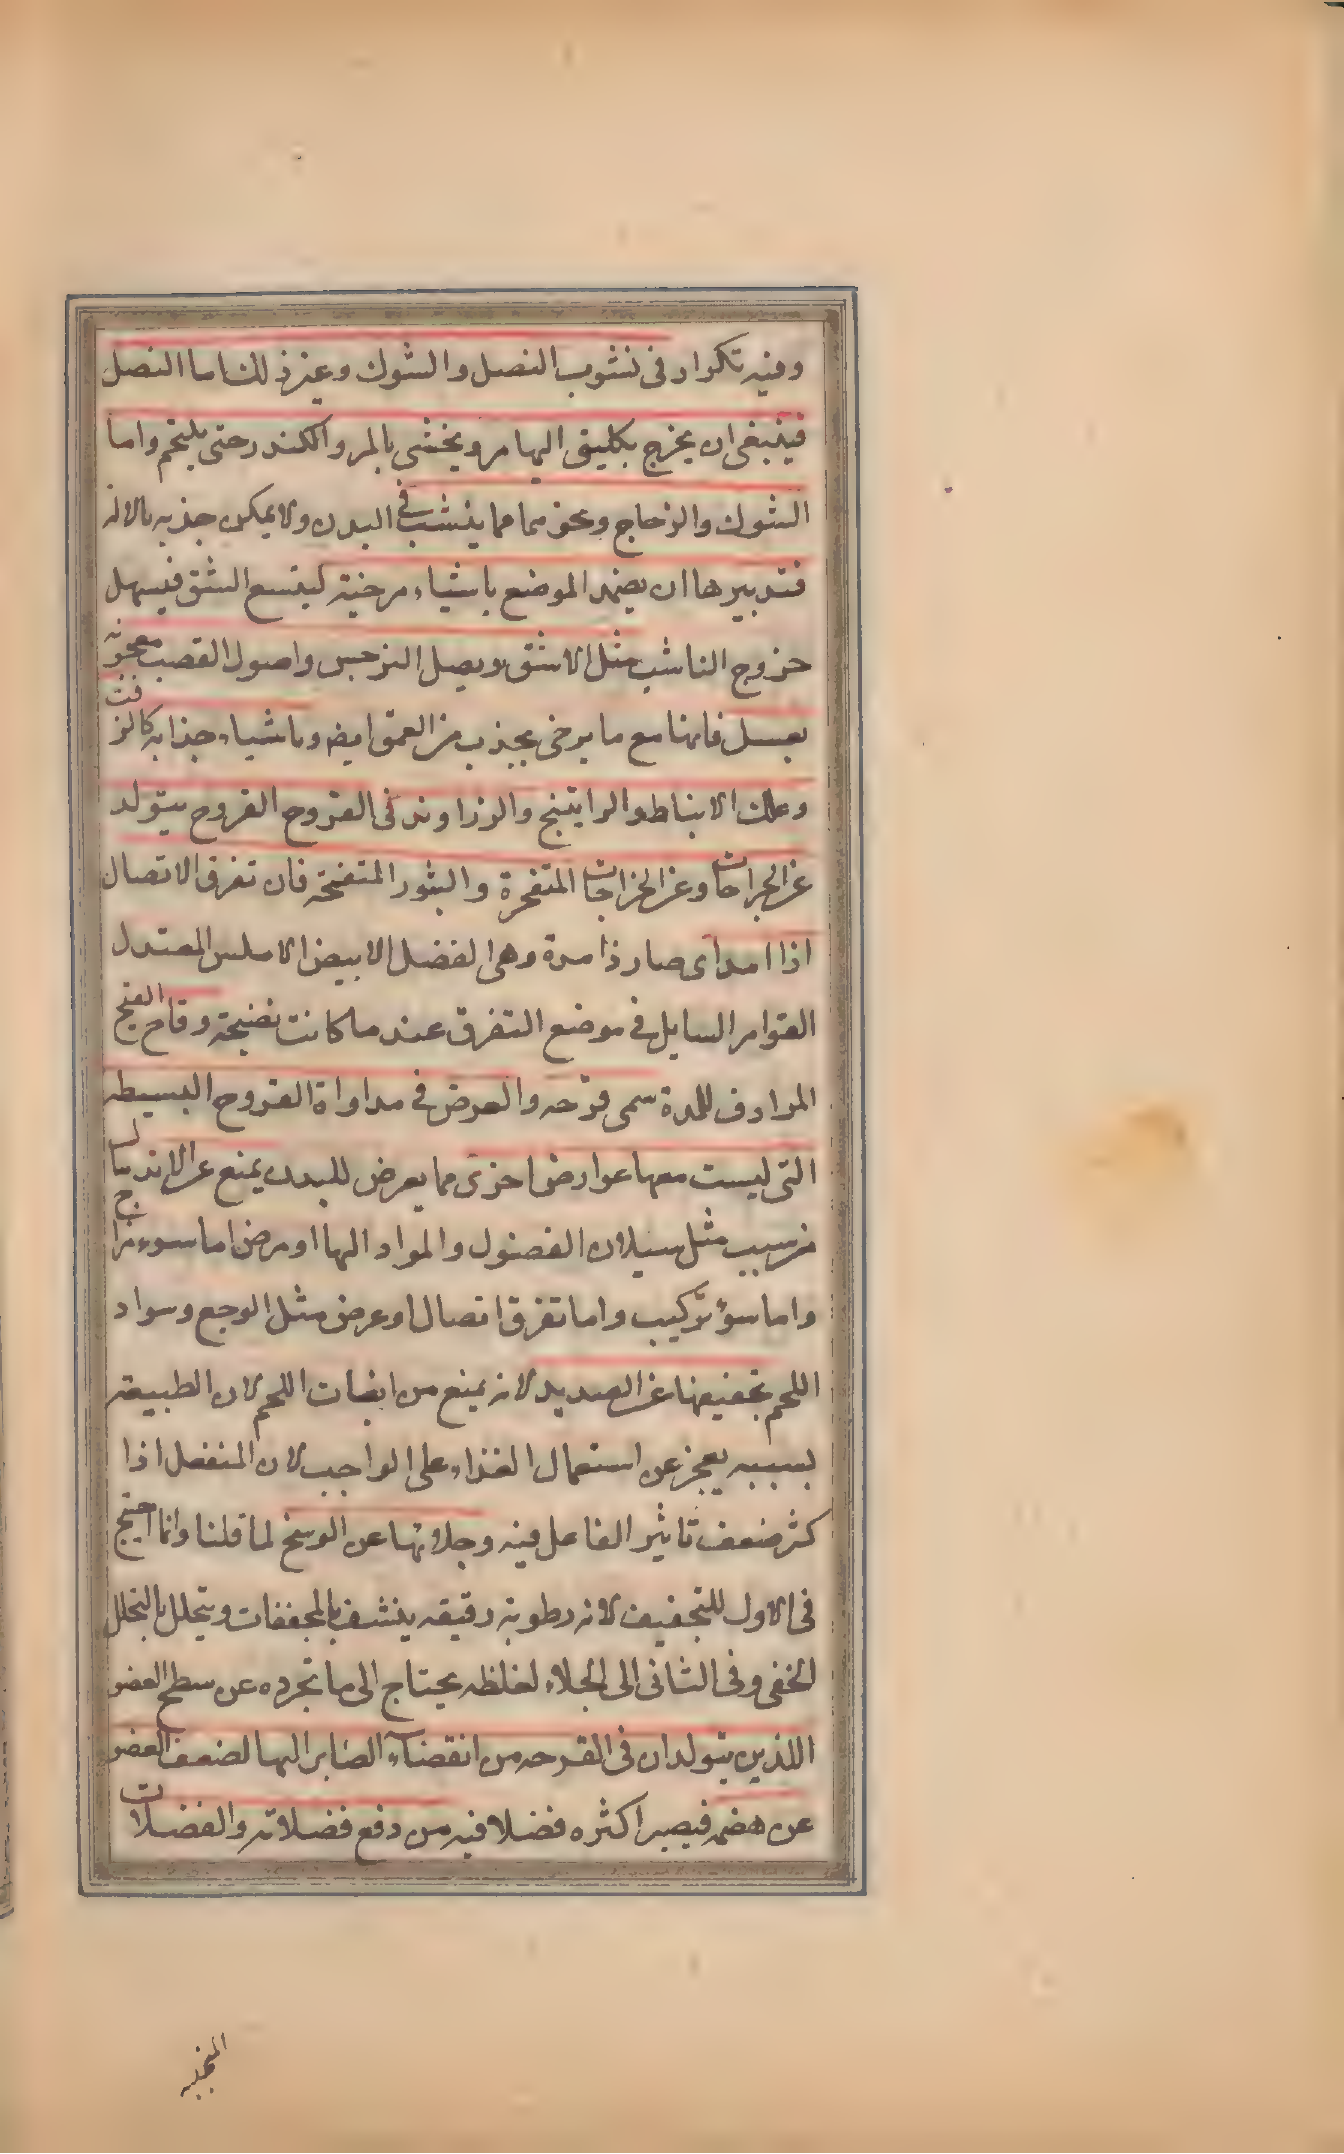 وفيه تكرار فى نشوب النصل والشوك وغير ذلك اما النصل
فينبغى ان يخرج بكلبتى السهام ويحشى بالمر والكندر حتى يلتحم واما
الشوك والزجاج ونحوهما مما ينشب فى البدن ولا يمكن جذبه بالاله
فتدبيرها ان يضمد الموضع باشياء مرخية ليتسع الشق فيسهل
خروج الناشب مثل الاشق وبصل النرجس واصول القصب معجونه
بعسل فانها مع ما يرخى يجذب من العمق ايضا وباشياء جذابه كالزفت
وعلك الانباط والراتينج والزراوند فى القروح القروح يتولد
عن الجراحات وعن الخراجات المتفجرة والبثور المتفتحة فان تفرق الاتصال
اذا امد اى صار ذا مدة وهى الفضل الابيض الاملس المعتدل
القوام السايل فى موضع التفرق عند ما كانت نضيجة وقاح القيح
المرادف للمدة سمى قرحه والغرض فى مداواة القروح البسيطه
التى ليست معها عوارض اخرى مما يعرض للبدن يمنع عن الاندمال
من سبب مثل سيلان الفضول والمواد اليها او مرض اما سوء مزاج
واما سوء تركيب واما تفرق اتصال او عرض مثل الوجع وسواد
اللحم تجفيفها عن الصديد لانه يمنع من انبات اللحم لان الطبيعة
بسببه يعجز عن استعمال الغذاء على الواجب لان المنفعل اذا
كثر ضعف تاثير الفاعل فيه وجلاؤها عن الوسخ لما قلنا وانما احتيج
فى الاول للتجفيف لانه رطوبة رقيقه ينشف بالمجففات ويتحلل بالتحلل
الخفى وفى الثانى الى الجلاء لغلظه يحتاج الى ما تجرده عن سطح العضو
اللذين يتولدان فى القرحه من انقضاء الصاير اليها لضعف العضو
عن هضمه فيصير اكثره فضلا فيه من دفع فضلاته والفضلات
المنجذبه